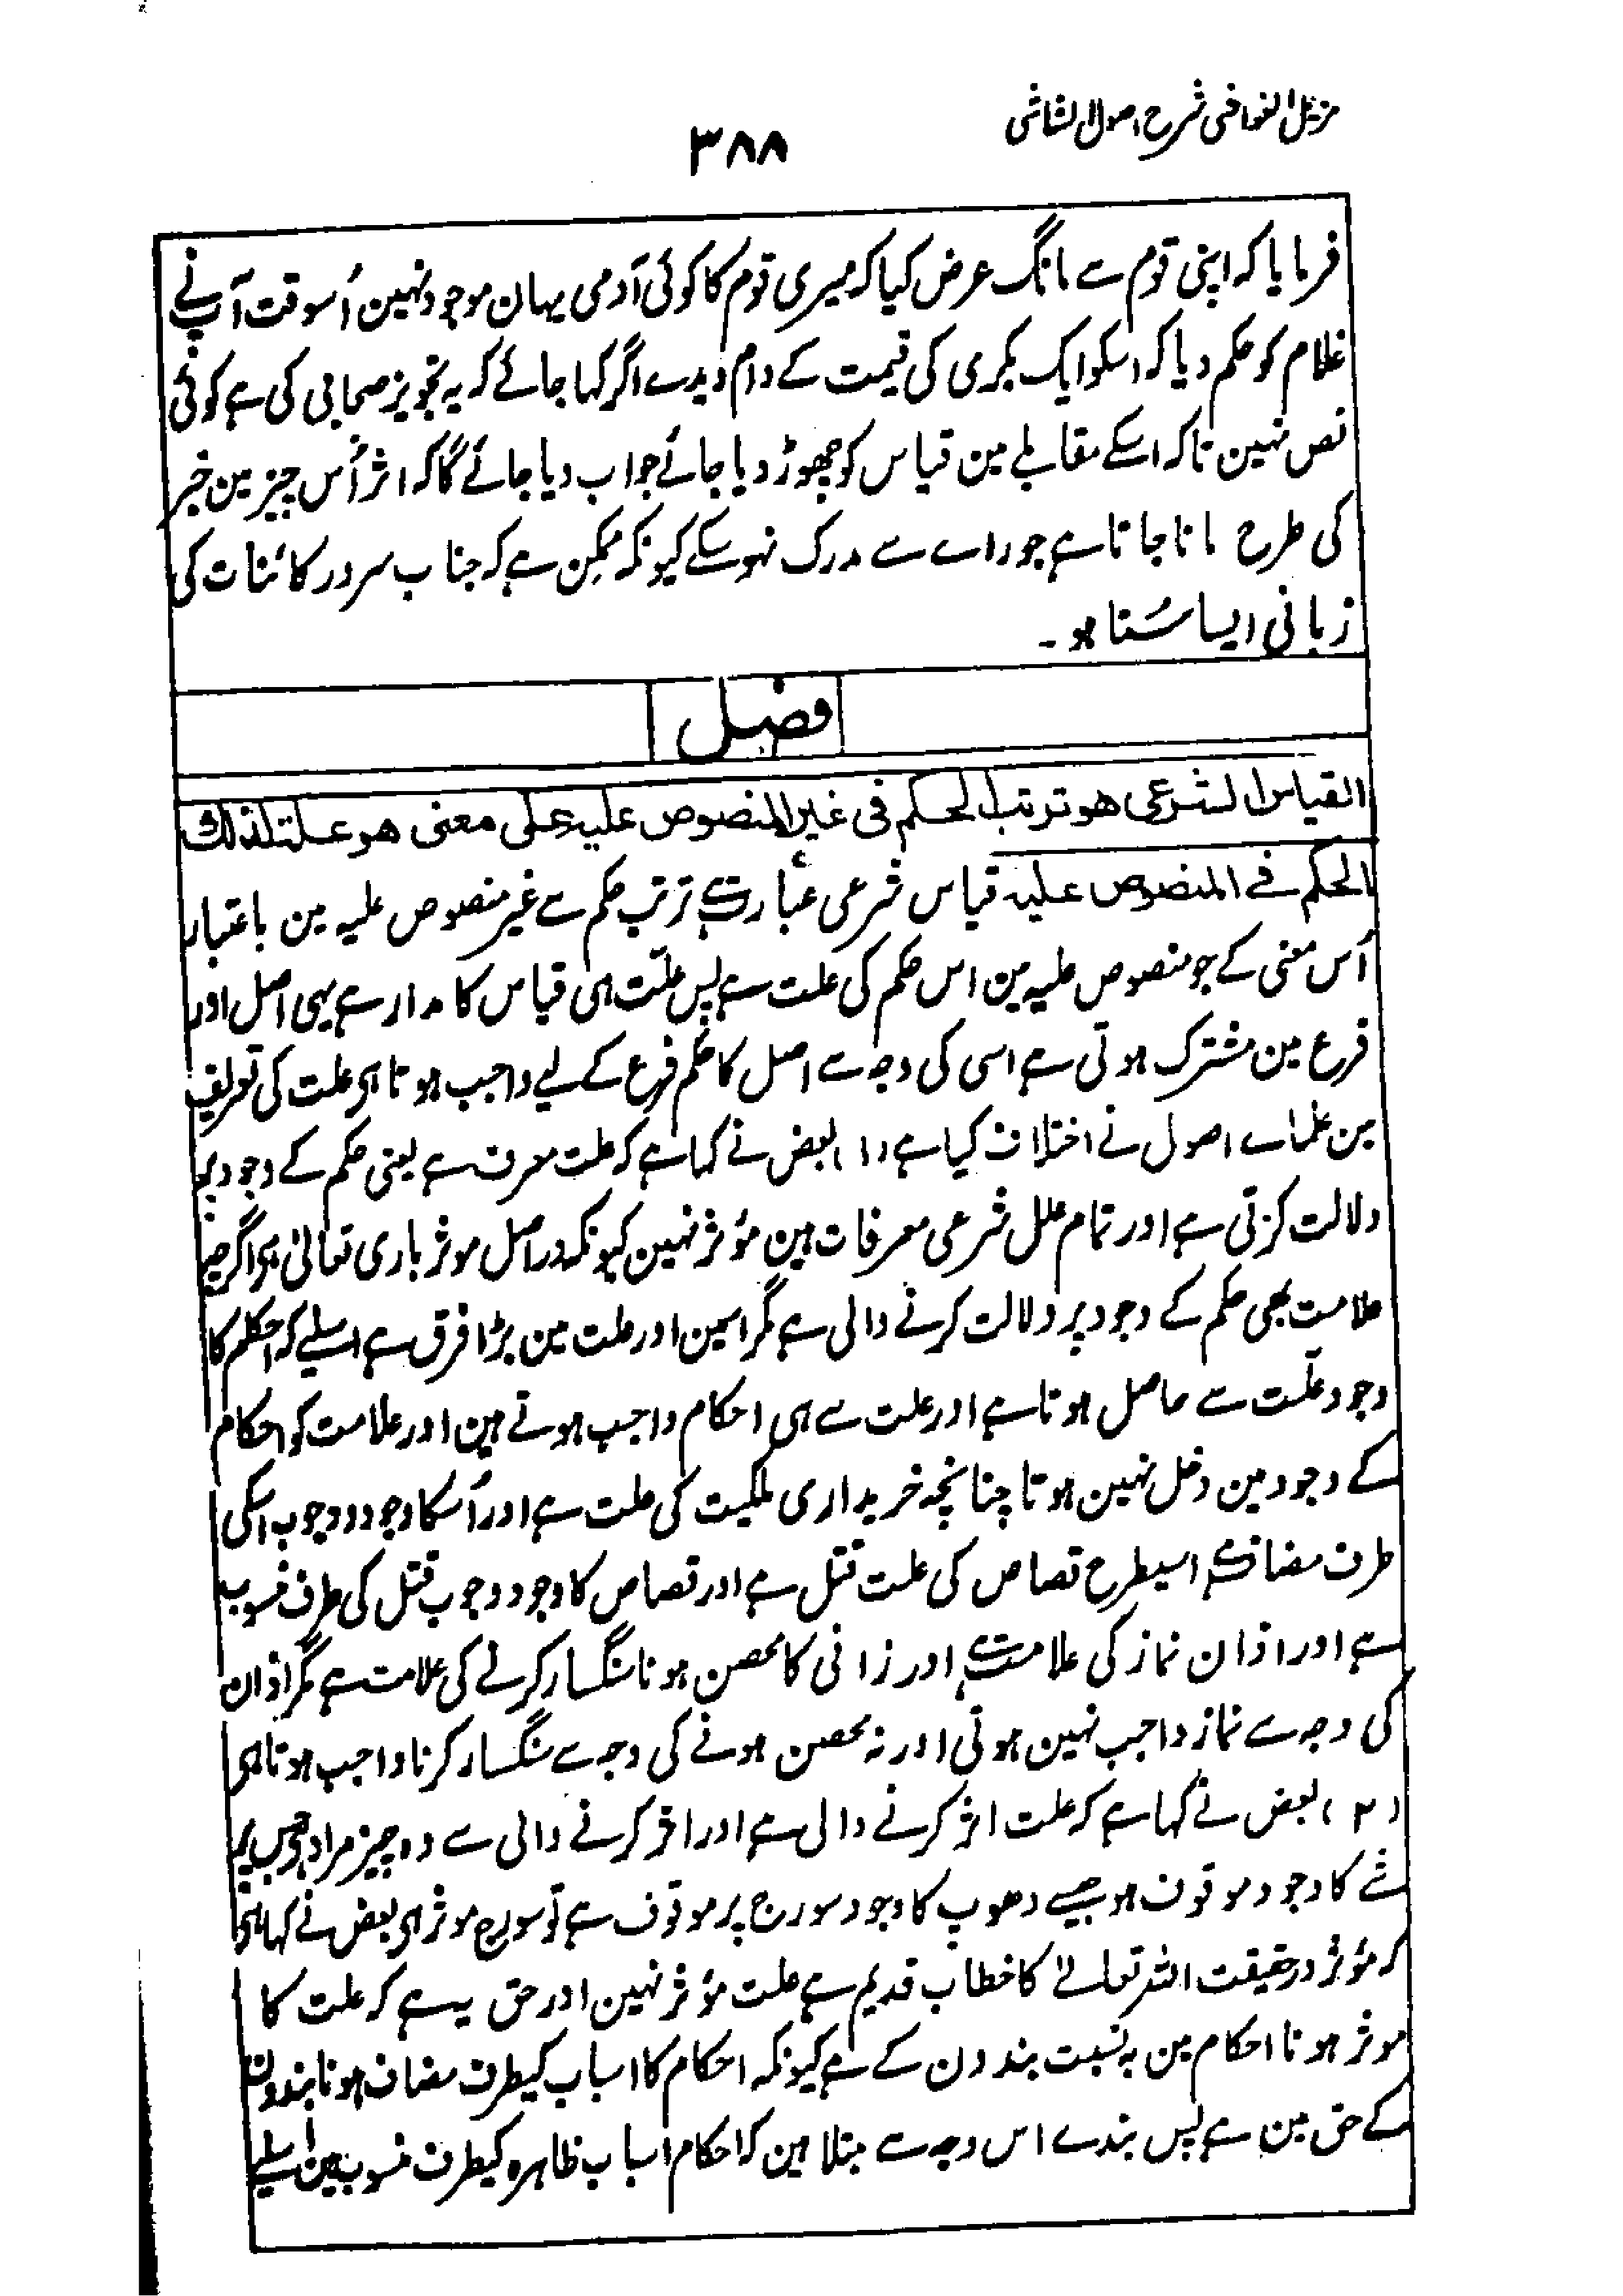 مزیل الغواشی شرح اصول الشاشی
۳۸۸
فرمایا کہ اپنی قوم سے مانگ عرض کیا کہ میری قوم کا کوئی آدمی یہان موجود نہین اُسوقت آپ نے
غلام کو حکم دیا کہ اسکو ایک بکری کی قیمت کے دام دیدے اگر کہا جائے کہ یہ تجویز صحابی کی ہے کوئی
نص نہین تاکہ اسکے مقابلے مین قیاس کو چھوڑ دیا جائے جواب دیا جائے گا کہ اثر اُس چیز مین خبر
کی طرح مانا جاتا ہے جو راے سے مدرک نہوسکے کیونکہ ممکن ہے کہ جناب سرور کائنات کی
زبانی ایسا سُنا ہو۔
فصل
القیاس الشرعی هو ترتب الحکم فی غیر المنصوص علیه علی معنی هو علة لذلك
الحکم فے المنصوص علیه قیاس شرعی عبارت ہے ترتب حکم سے غیر منصوص علیہ مین باعتبار
اُس معنی کے جو منصوص علیہ مین اس حکم کی علت ہے پس علّت ہی قیاس کا مدار ہے یہی اصل اور
فرع مین مشترک ہوتی ہے اسی کی وجہ سے اصل کا حکم فرع کے لیے واجب ہوتا ہی علت کی تعریف
مین علماے اصول نے اختلاف کیا ہے (۱) بعض نے کہا ہے کہ علت معرف ہے یعنی حکم کے وجود پر
دلالت کرتی ہے اور تمام علل شرعی معرفات ہین مؤثر نہین کیونکہ دراصل موثر باری تعالیٰ ہی اگرچہ
علامت بھی حکم کے وجود پر دلالت کرنے والی ہے مگر اسمین اور علت مین بڑا فرق ہے اسلیے کہ احکام کا
وجود علّت سے حاصل ہوتا ہے اور علت سے ہی احکام واجب ہوتے ہین اور علامت کو احکام
کے وجود مین دخل نہین ہوتا چنانچہ خریداری ملکیت کی علت ہے اور اُسکا وجود و وجوب اسکی
طرف مضاف ہے اسیطرح قصاص کی علت قتل ہے اور قصاص کا وجود و وجوب قتل کی طرف منسوب
ہے اور اذان نماز کی علامت ہے اور زانی کا محصن ہونا سنگسار کرنے کی علامت ہے مگر اذان
کی وجہ سے نماز واجب نہین ہوتی اور نہ محصن ہونے کی وجہ سے سنگسار کرنا واجب ہوتا ہی
(۲) بعض نے کہا ہے کہ علت اثر کرنے والی ہے اور اثر کرنے والی سے وہ چیز مراد ہی جس پر
شے کا وجود موقوف ہو جیسے دھوپ کا وجود سورج پر موقوف ہے تو سورج موثر ہی بعض نے کہا ہی
کہ مؤثر درحقیقت اللہ تعالےٰ کا خطاب قدیم ہے علت مؤثر نہین اور حق یہ ہے کہ علت کا
موثر ہونا احکام مین بہ نسبت بندون کے ہے کیونکہ احکام کا اسباب کیطرف مضاف ہونا بندون
کے حق مین ہے پس بندے اس وجہ سے مبتلا ہین کہ احکام اسباب ظاہرہ کیطرف منسوب ہین اسلیے